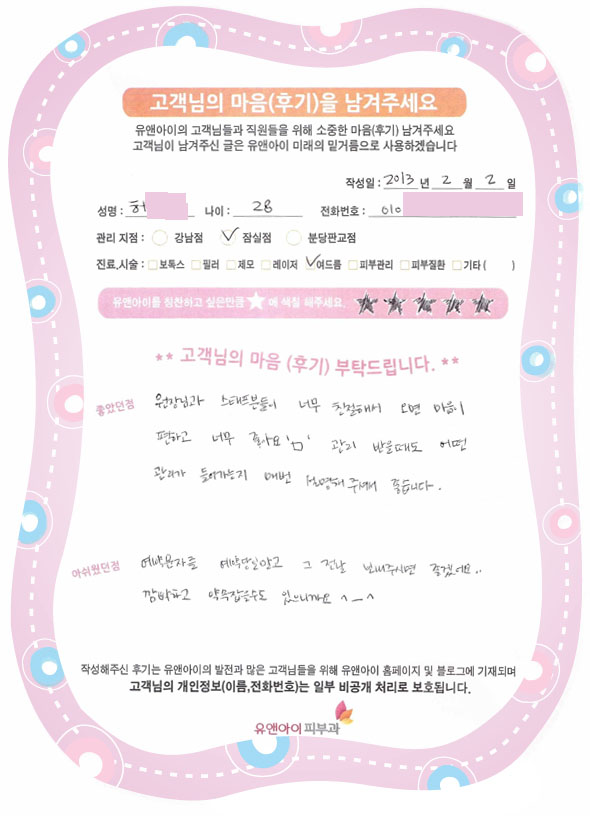 고객님의 마음(후기)을 남겨주세요
유앤아이의 고객님들과 직원들을 위해 소중한 마음(후기) 남겨주세요
고객님이 남겨주신 글은 유앤아이 미래의 밑거름으로 사용하겠습니다
작성일 : 2013 년 2 월 2 일
성명 : 허 나이 : 28 전화번호 : 010
관리 지점 : 강남점 잠실점 분당판교점
진료,시술 : 보톡스 필러 제모 레이저 여드름 피부관리 피부질환 기타 ( )
유앤아이를 칭찬하고 싶은만큼 ★ 에 색칠 해주세요. ★ ★ ★ ★ ★
** 고객님의 마음 (후기) 부탁드립니다. **
좋았던점 원장님과 스태프분들이 너무 친절해서 오면 마음이
편하고 너무 좋아요 'ㅁ' 관리 받을때도 어떤
관리가 들어가는지 매번 설명해 주셔서 좋습니다.
아쉬웠던점 예약문자를 예약당일말고 그 전날 보내주시면 좋겠어요..
깜박하고 약속잡을수도 있으니까요 ^_^
작성해주신 후기는 유앤아이의 발전과 많은 고객님들을 위해 유앤아이 홈페이지 및 블로그에 기재되며
고객님의 개인정보(이름,전화번호)는 일부 비공개 처리로 보호됩니다.
유앤아이 피부과